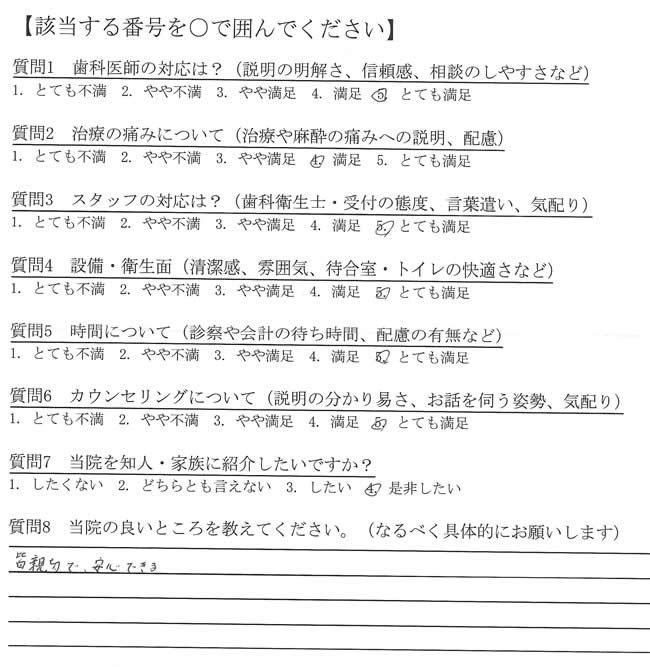 【該当する番号を○で囲んでください】
質問1 歯科医師の対応は？（説明の明解さ、信頼感、相談のしやすさなど）
1. とても不満 2. やや不満 3. やや満足 4. 満足 5. とても満足
質問2 治療の痛みについて（治療や麻酔の痛みへの説明、配慮）
1. とても不満 2. やや不満 3. やや満足 4. 満足 5. とても満足
質問3 スタッフの対応は？（歯科衛生士・受付の態度、言葉遣い、気配り）
1. とても不満 2. やや不満 3. やや満足 4. 満足 5. とても満足
質問4 設備・衛生面（清潔感、雰囲気、待合室・トイレの快適さなど）
1. とても不満 2. やや不満 3. やや満足 4. 満足 5. とても満足
質問5 時間について（診察や会計の待ち時間、配慮の有無など）
1. とても不満 2. やや不満 3. やや満足 4. 満足 5. とても満足
質問6 カウンセリングについて（説明の分かり易さ、お話を伺う姿勢、気配り）
1. とても不満 2. やや不満 3. やや満足 4. 満足 5. とても満足
質問7 当院を知人・家族に紹介したいですか？
1. したくない 2. どちらとも言えない 3. したい 4. 是非したい
質問8 当院の良いところを教えてください。（なるべく具体的にお願いします）
皆親切で、安心できる